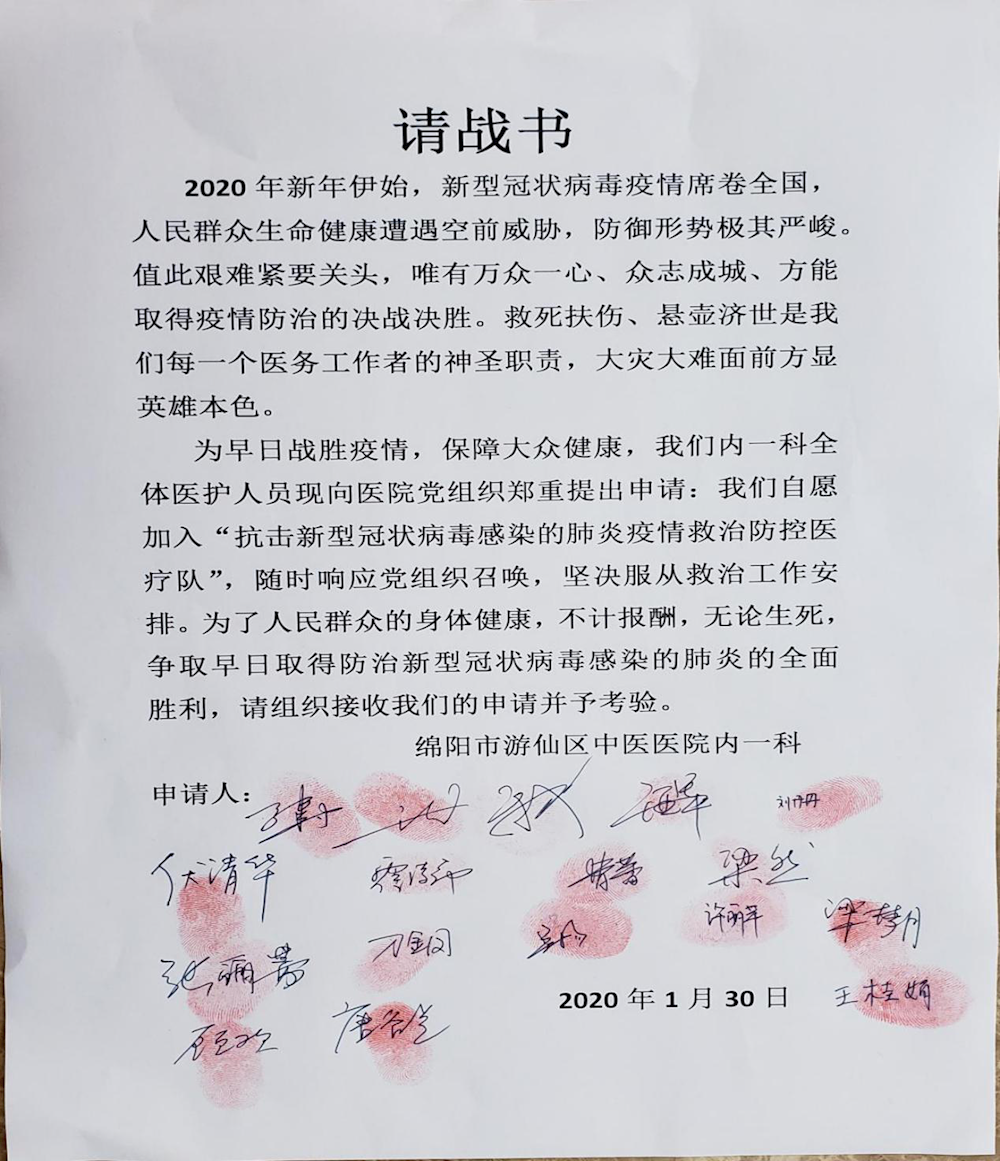 请战书
2020 年新年伊始，新型冠状病毒疫情席卷全国，
人民群众生命健康遭遇空前威胁，防御形势极其严峻。
值此艰难紧要关头，唯有万众一心、众志成城、方能
取得疫情防治的决战决胜。救死扶伤、悬壶济世是我
们每一个医务工作者的神圣职责，大灾大难面前方显
英雄本色。
为早日战胜疫情，保障大众健康，我们内一科全
体医护人员现向医院党组织郑重提出申请：我们自愿
加入“抗击新型冠状病毒感染的肺炎疫情救治防控医
疗队”，随时响应党组织召唤，坚决服从救治工作安
排。为了人民群众的身体健康，不计报酬，无论生死，
争取早日取得防治新型冠状病毒感染的肺炎的全面
胜利，请组织接收我们的申请并予考验。
绵阳市游仙区中医医院内一科
申请人：
刘丹丹
伏清华 梁然
梁慧月
2020 年 1 月 30 日 王桂娟